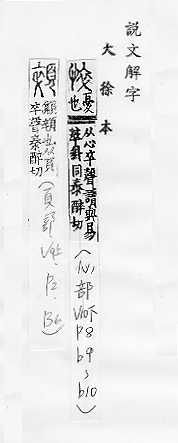 説文解字
大徐本
悴 憂也从心卒聲讀與易萃卦同秦醉切(心部 V10下 P8 b9~b10)
顇 顦顇也从頁卒聲秦醉切(頁部 V9上 P2 B6)